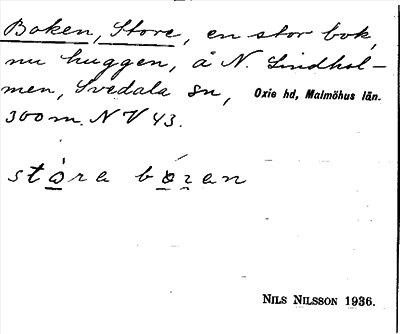 Boken, Store, en stor bok,
nu huggen, å N. Lindhol-
men, Svedala sn, Oxie hd, Malmöhus län.
300 m. N V 43.
stora boꝛan
NILS NILSSON 1936.